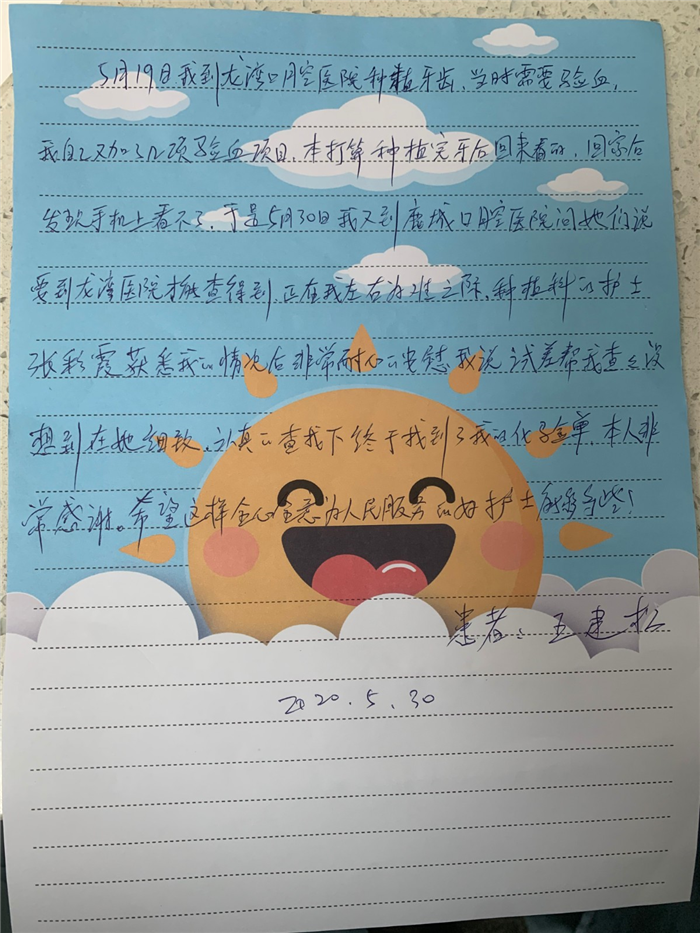 5月19日我到龙湾口腔医院种植牙齿,当时需要验血,
我自己又加了几项验血项目,本打算种植完牙后回来看的,回家后
发现手机上看不了,于是5月30日我又到鹿城口腔医院问她们说
要到龙湾医院才能查得到,正在我左右为难之际,种植科的护士
张彩霞获悉我的情况后非常耐心的安慰我说试着帮我查查没
想到在她细致、认真的查找下终于找到了我的化验单,本人非
常感谢。希望这样全心全意为人民服务的好护士能多些!
患者:王建松
2020.5.30